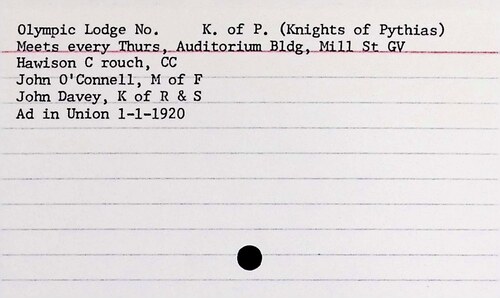 Olympic Lodge No.     K. of P. (Knights of Pythias)
Meets every Thurs, Auditorium Bldg, Mill St GV
Hawison C rouch, CC
John O'Connell, M of F
John Davey, K of R & S
Ad in Union 1-1-1920